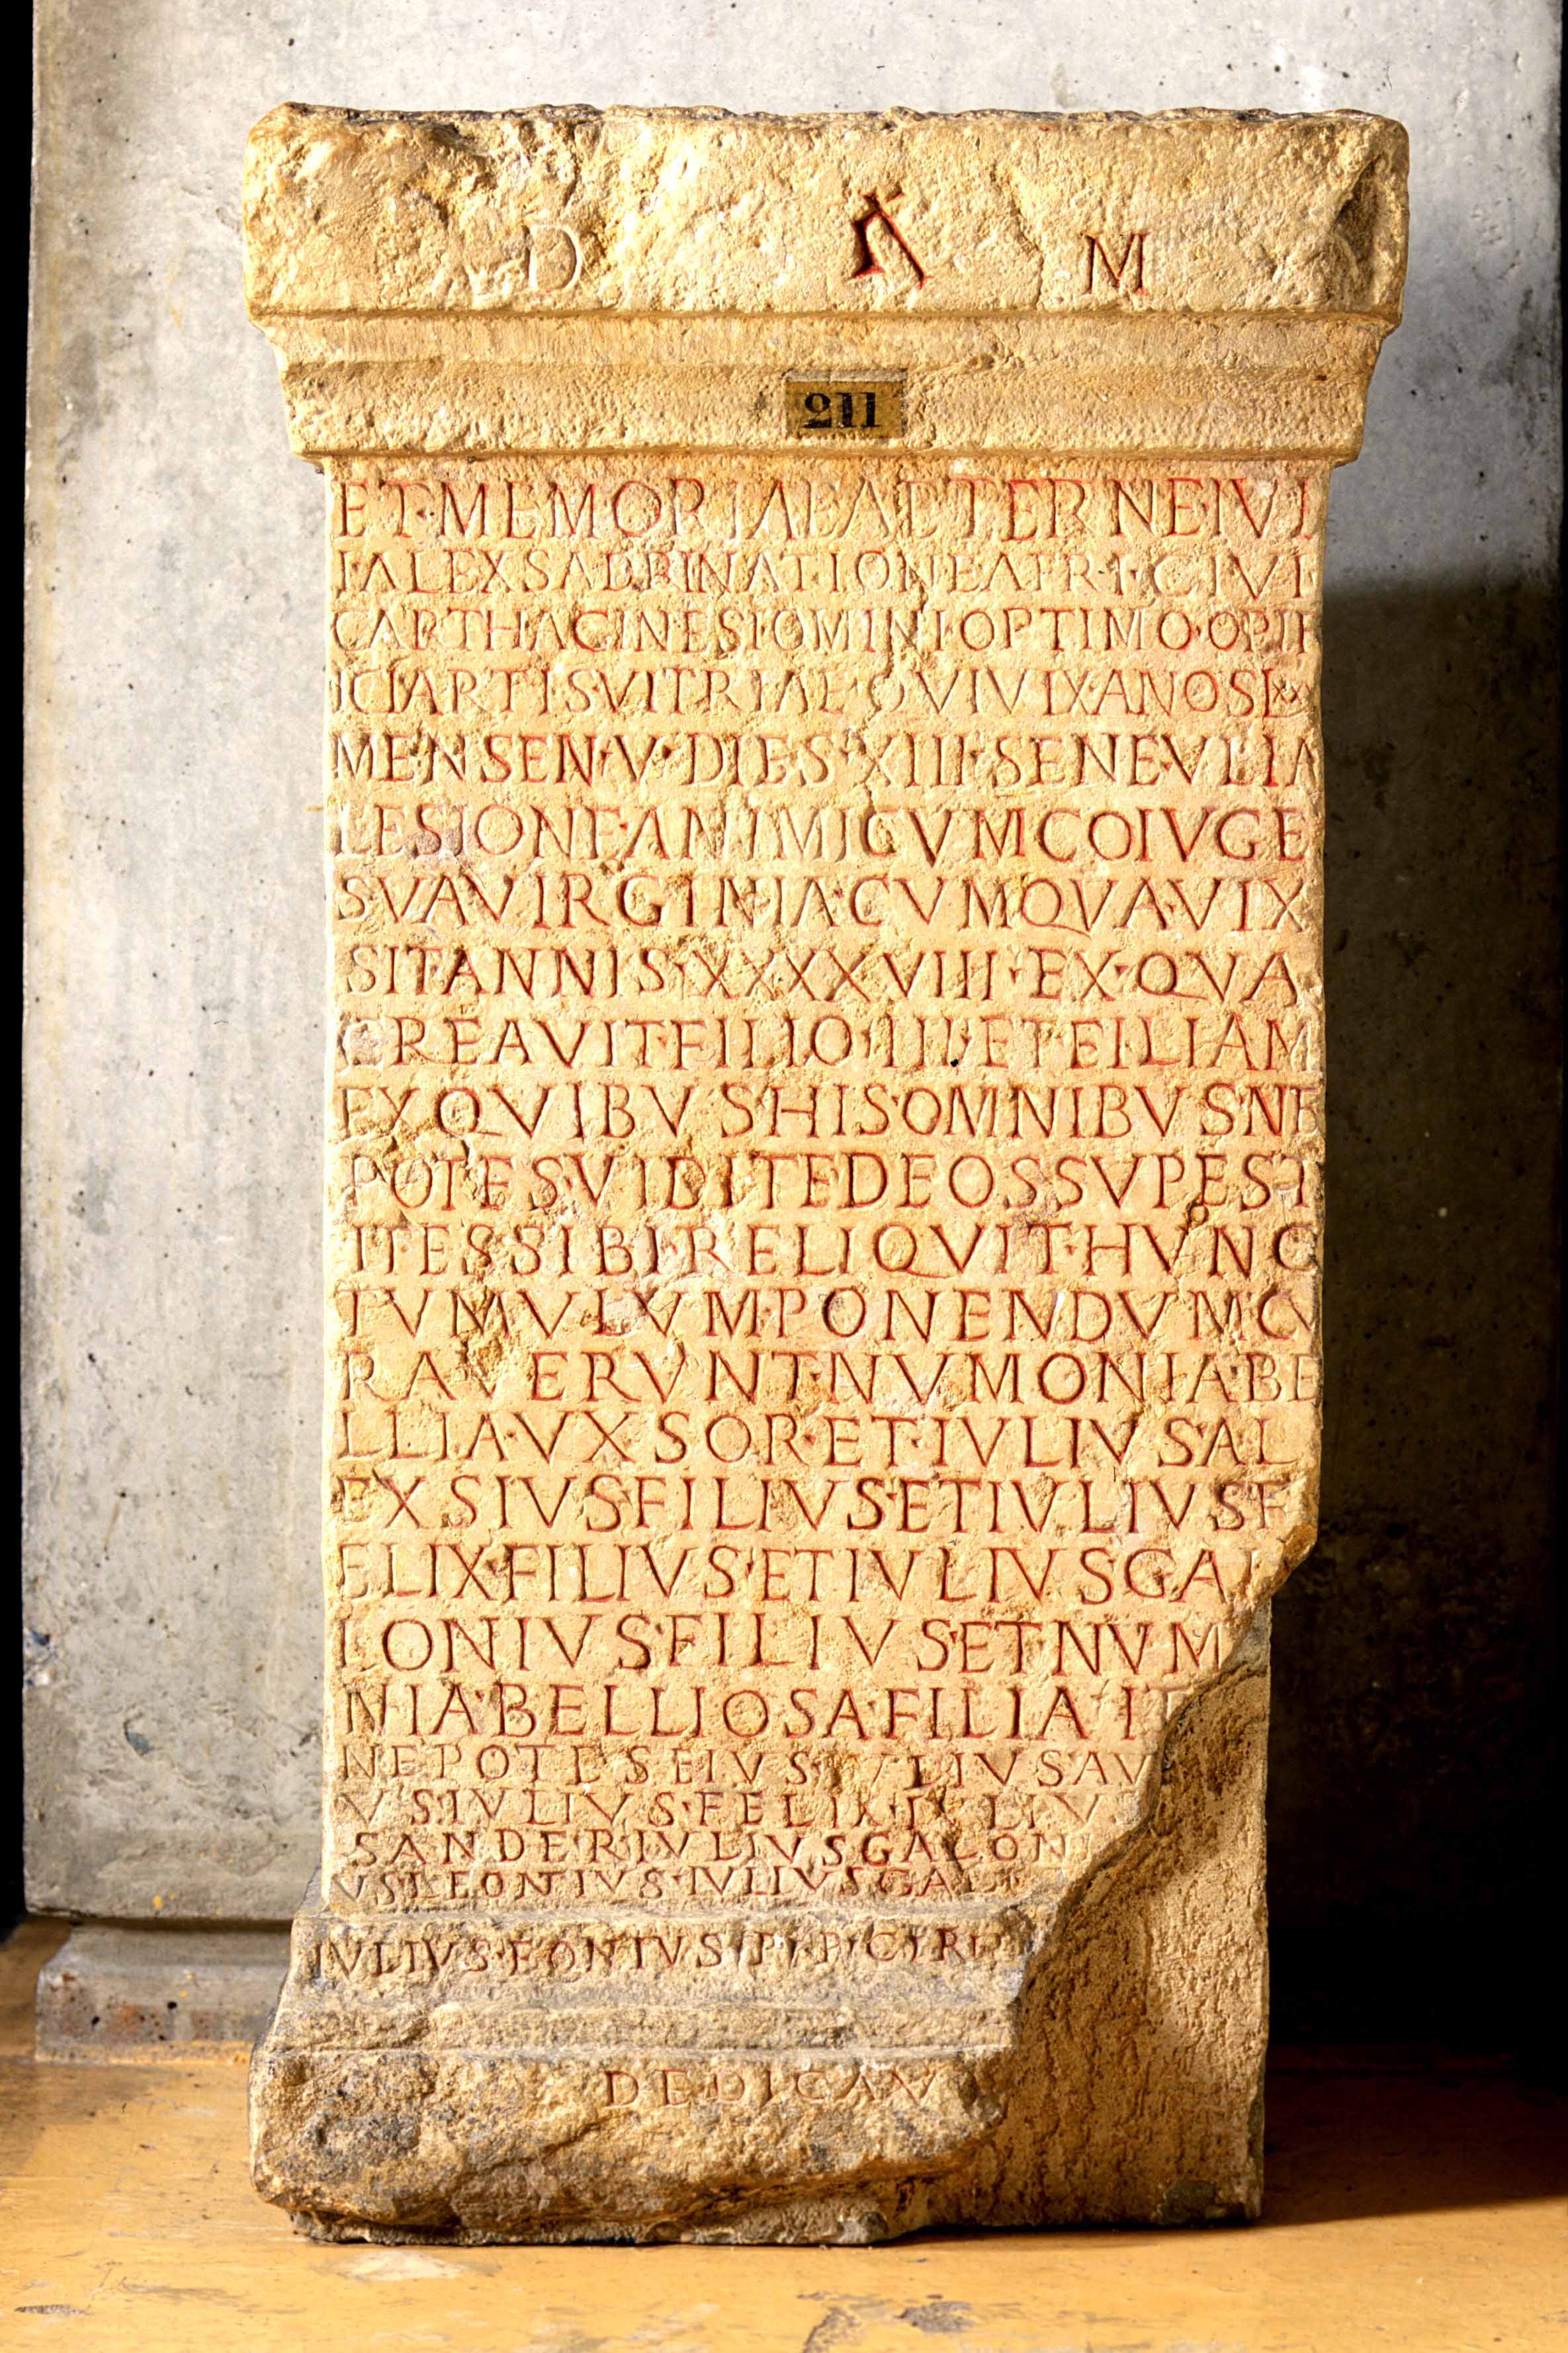 D M
211
ET·MEMORIAE AETERNE IVL
I ALEXSADRI NATIONE AFRI·CIVI
CARTHAGINESI OMINI OPTIMO·OPIF
ICI ARTIS VITRIAE QVI VIX ANOS LXX
MENSEN·V·DIES·XIII·SENE·VLIA
LESIONE·ANIMI CVM COIVGE
SVA VIRGINIA·CVM QVA·VIX
SIT ANNIS·XXXXVIII·EX·QVA
CREAVIT·FILIO·III·ET FILIAM
EX QVIBVS HIS OMNIBVS·NE
POTES·VIDIT ED EOS SVPEST
ITES SIBI·RELIQVIT·HVNC
TVMVLVM·PONENDVM·CV
RAVERVNT·NVMONIA·BE
LLIA·VXSOR·ET·IVLIVS·AL
EXSIVS·FILIVS·ET IVLIVS F
ELIX·FILIVS·ET IVLIVS GAL
LONIVS·FILIVS·ET·NVM
NIA·BELLIOSA·FILIA·IT
NEPOTES EIVS IVLIVS·AV
VS·IVLIVS·FELIX·IVLIVS
SANDER·IVLIVS GALONI
VS LEONTIVS·IVLIVS GAL
IVLIVS·EONIVS·P·P·CVR
DEDICAV